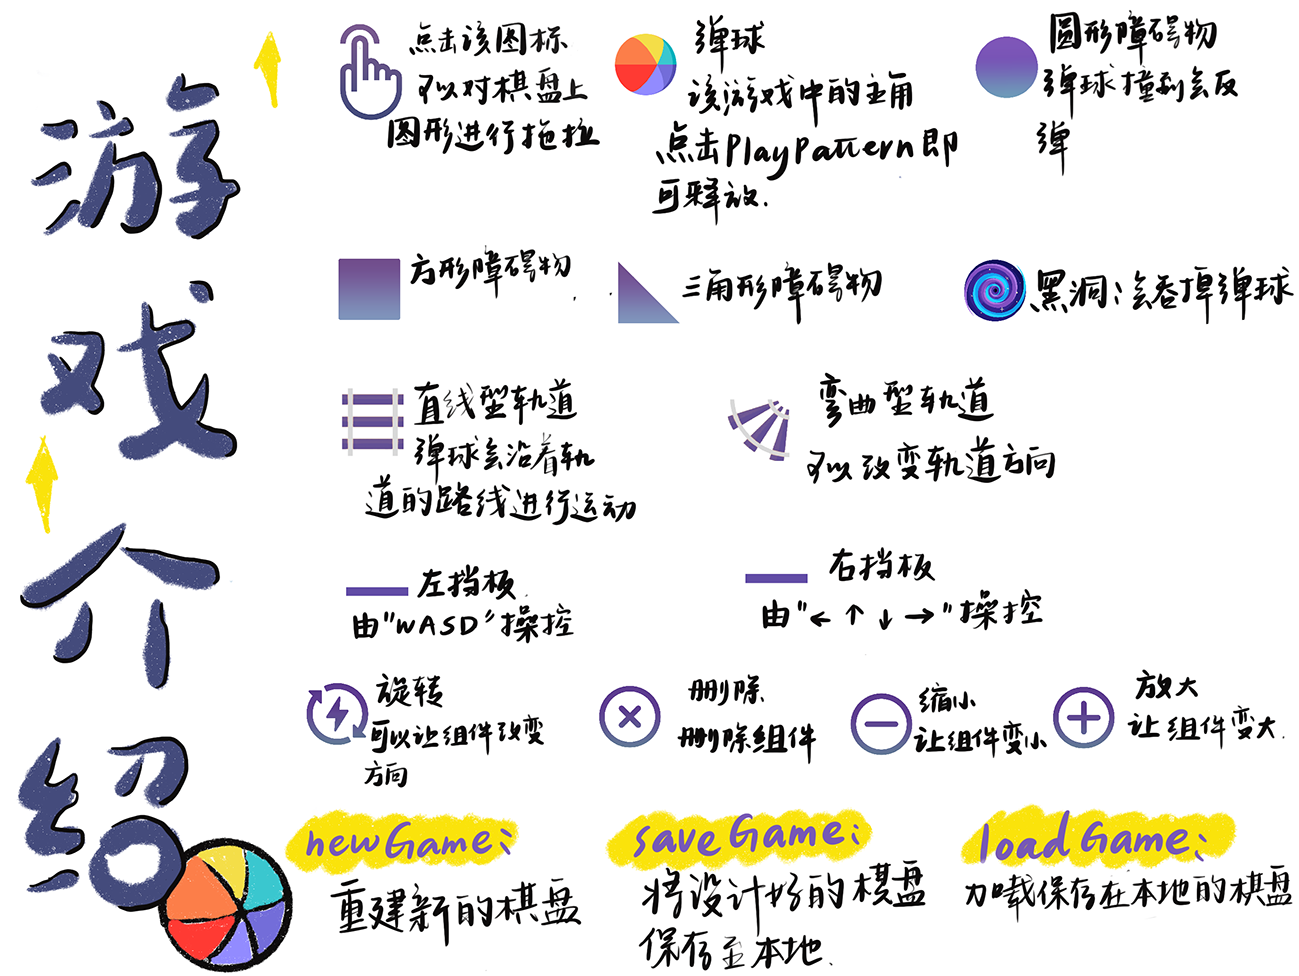 游戏介绍
点击该图标
可以对棋盘上
图形进行拖拉
弹球
该游戏中的主角
点击PlayPattern即
可释放.
圆形障碍物
弹球撞到会反
弹
方形障碍物
三角形障碍物
黑洞:会吞掉弹球
直线型轨道
弹球会沿着轨
道的路线进行运动
弯曲型轨道
可以改变轨道方向
左挡板
由"WASD"操控
右挡板
由"← ↑ ↓ →"操控
旋转
可以让组件改变
方向
删除
删除组件
缩小
让组件变小
放大
让组件变大.
newGame:
重建新的棋盘
saveGame:
将设计好的棋盘
保存至本地.
loadGame:
加载保存在本地的棋盘